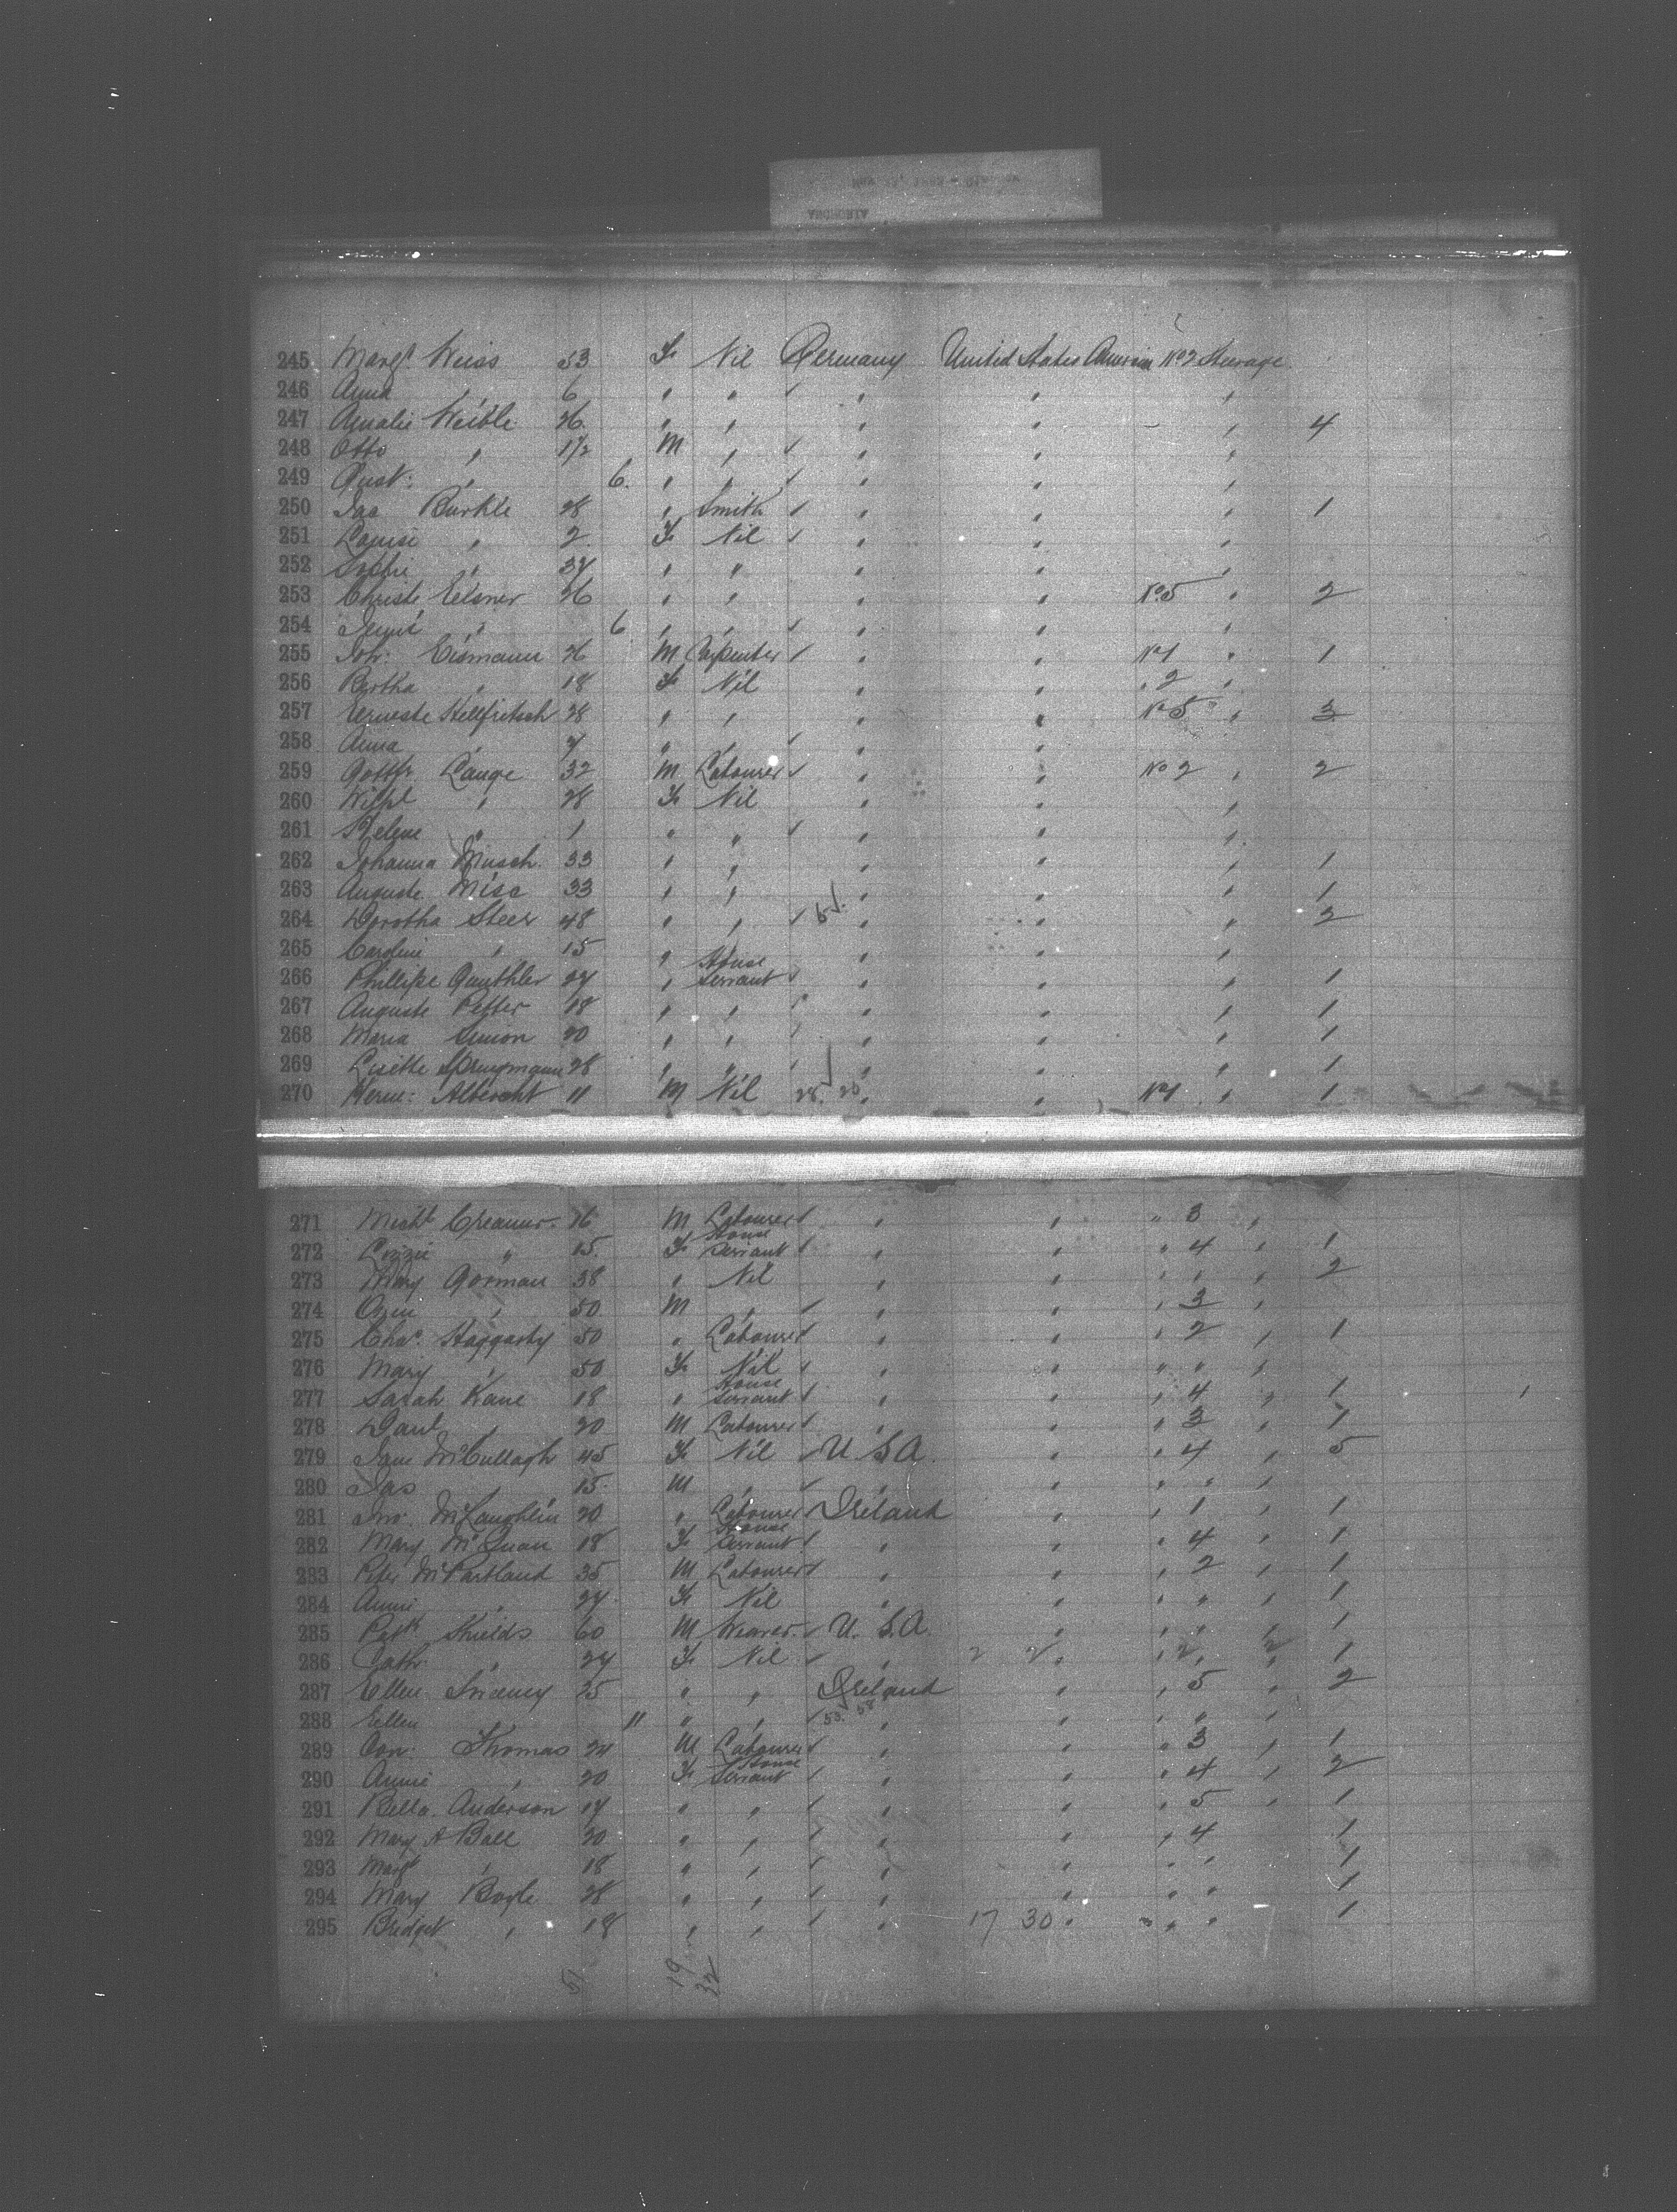 245 Margt. Weiss 53 F Nil Germany United States America No 2 Steerage
246 Anna " 6 " " " " "
247 Amalie Weible 26 " " " " " 4
248 Otto " 1 1/2 M " " " "
249 Gust: " 6 " " " " "
250 Jas Burkle 28 " Smith " " " 1
251 Louise " 2 F Nil " " "
252 Sophie " 34 " " " " "
253 Christe Eelsner 26 " " " " No 5 " 2
254 " 6 " " " " "
255 Joh: Eismann 26 M Carpenter " " No 1 " 1
256 Bertha " 18 F Nil " " " 2 "
257 Erneste Hellfritsch 28 " " " " No 5 " 3
258 Anna " " " " "
259 Gottfr. Lange 32 M Labourer " " No 2 " 2
260 Wilhl " 28 F Nil " " "
261 Helene " 1 " " " " "
262 Johanna Musch 33 " " " " " 1
263 Auguste Misc 33 " " " " " 1
264 Dorotha Steer 48 " " " " " 2
265 Caroline " 15 " " " "
266 Phillipe Gunthler 24 " House Servant " " " 1
267 Auguste Petter 18 " " " " " 1
268 Maria Simon 20 " " " " " 1
269 Lisette Sprungmann 28 " " " " " 1
270 Herm: Albercht 11 M Nil 28 20 " " No 1 " 1
271 Michl Creamer 26 M Labourer " " " 3 "
272 Lizzie " 15 F House Servant " " " 4 " 1
273 Mary Gorman 38 " Nil " " " " " 2
274 Owen " 50 M " " " " 3 "
275 Chas. Haggarty 50 " Labourer " " " 2 " 1
276 Mary " 50 F Nil " " " " "
277 Sarah Kane 18 " House Servant " " " 4 " 1 1
278 Danl " 20 M Labourer " " " 3 " 1
279 Jane McCullagh 45 F Nil U. S. A. " " 4 " 5
280 Jas " 15 M " " " " " "
281 Jno. McLaughlin 20 " Labourer Ireland " " 1 " 1
282 Mary McQuan 18 F House Servant " " " 4 " 1
283 Peter McPartland 35 M Labourer " " " 2 " 1
284 Annie " 24 F Nil " " " " " 1
285 Patk Shields 60 M Weaver U. S. A. " " " " 1
286 Cathr. " 24 F Nil " 2 2 " " 2 " 2 " 1
287 Ellen Sweeney 25 " " Ireland " " 5 " 2
288 Ellen " 11 " " 53 58 " " " " "
289 Con: Thomas 24 M Labourer " " " 3 " 1
290 Annie " 20 F House Servant " " " 4 " 2
291 Bella Anderson 17 " " " " " 5 " 1
292 Mary A Ball 20 " " " " " 4 1
293 Margt " 18 " " " " " " 1
294 Mary Boyle 28 " " " " " " 1
295 Bridget " 18 " " " 17 30 " " " " 1
51 19 32